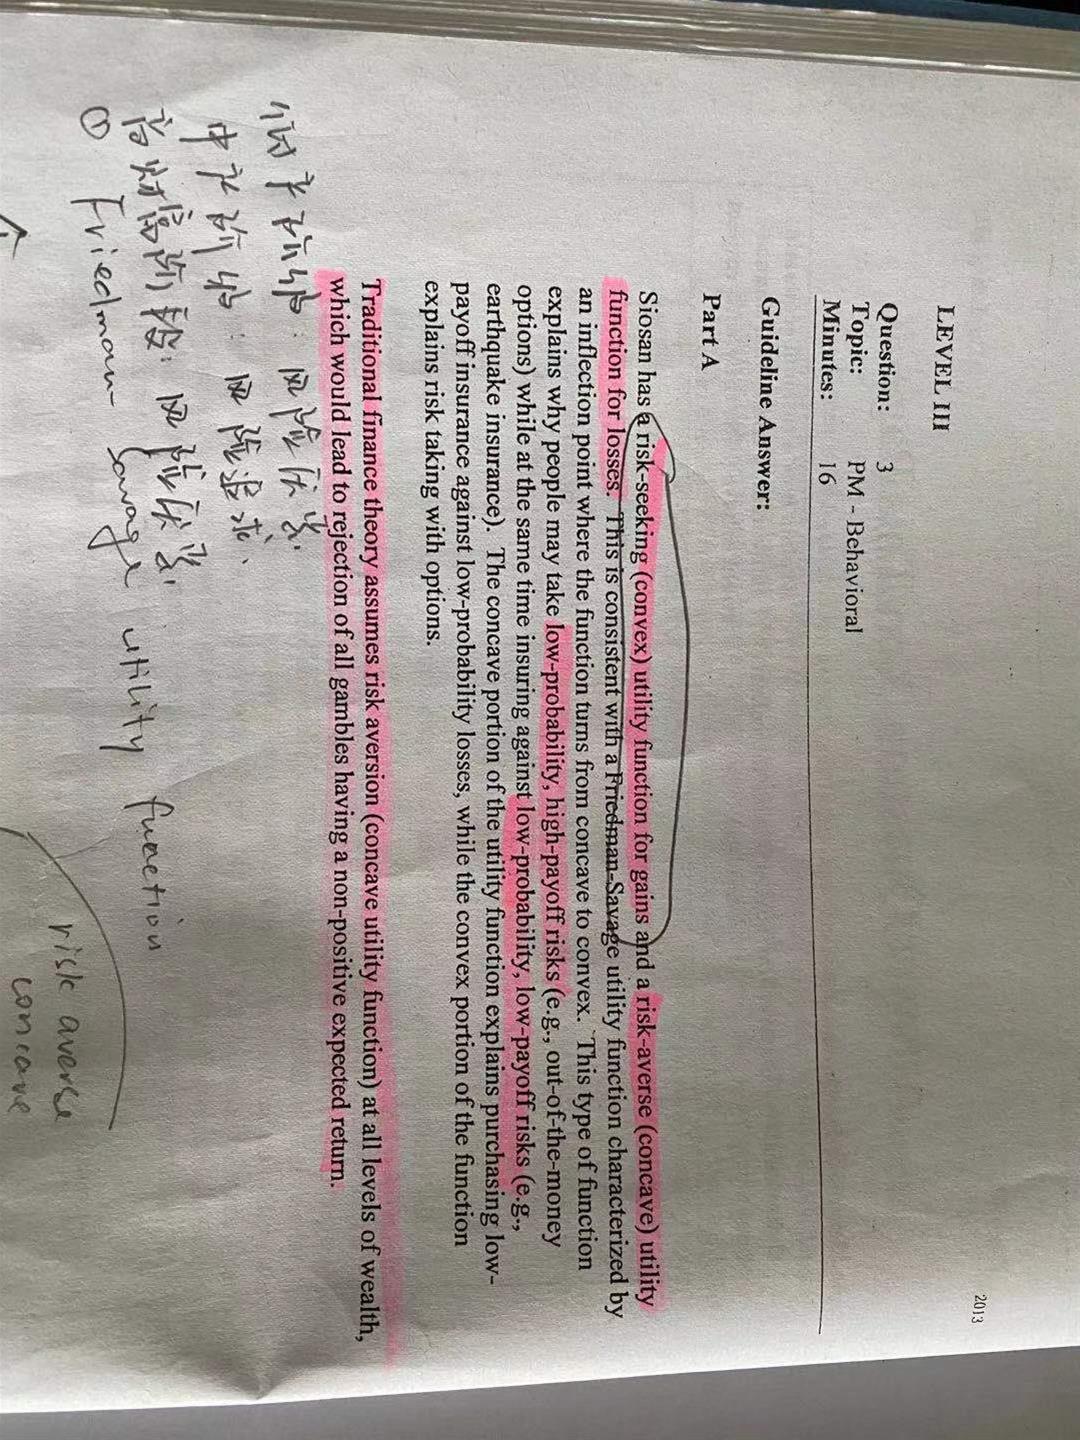 2013
LEVEL III
Question: 3
Topic: PM - Behavioral
Minutes: 16
Guideline Answer:
Part A
Siosan has a risk-seeking (convex) utility function for gains and a risk-averse (concave) utility
function for losses. This is consistent with a Friedman-Savage utility function characterized by
an inflection point where the function turns from concave to convex. This type of function
explains why people may take low-probability, high-payoff risks (e.g., out-of-the-money
options) while at the same time insuring against low-probability, low-payoff risks (e.g.,
earthquake insurance). The concave portion of the utility function explains purchasing low-
payoff insurance against low-probability losses, while the convex portion of the function
explains risk taking with options.
Traditional finance theory assumes risk aversion (concave utility function) at all levels of wealth,
which would lead to rejection of all gambles having a non-positive expected return.
阶级: 风险厌恶.
中 阶级: 风险追求.
高 阶级: 风险厌恶.
① Friedman-Savage utility function
risk averse
concave